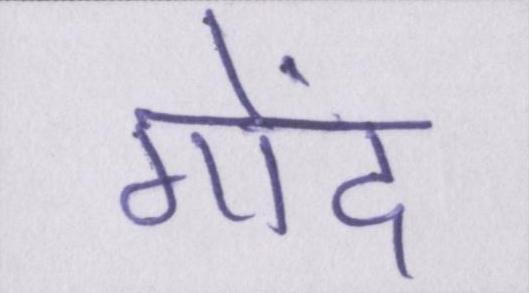 गोंद